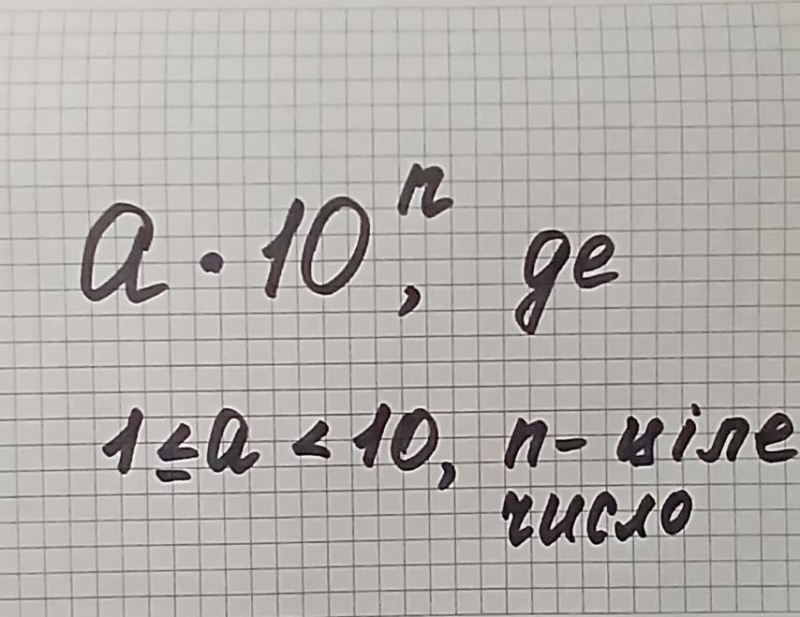 a · 10ⁿ, де
1 ≤ a < 10, n - ціле
число